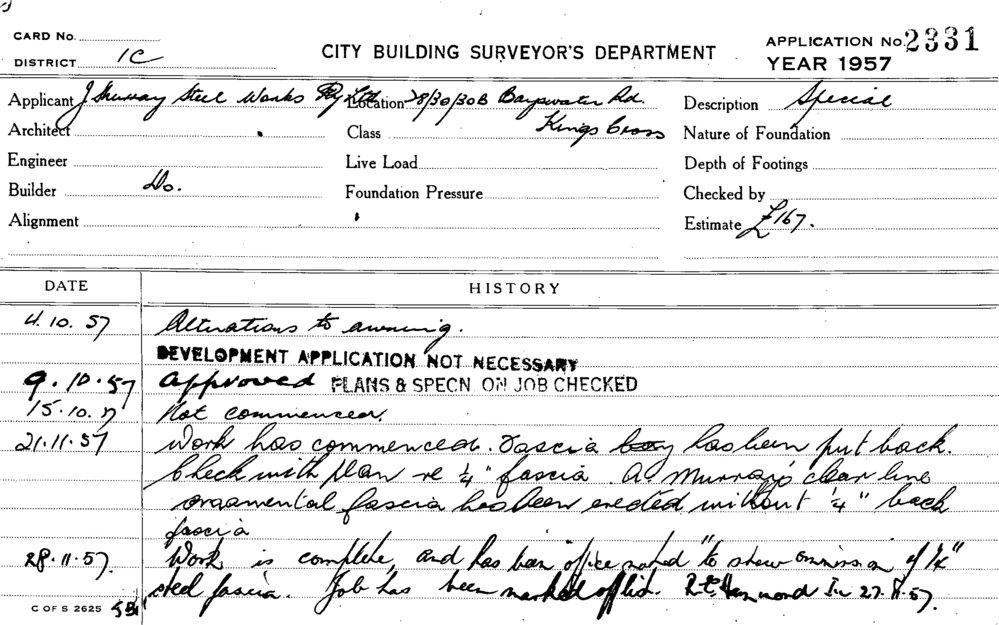 CARD No.
DISTRICT 1C
CITY BUILDING SURVEYOR'S DEPARTMENT
APPLICATION No. 2331
YEAR 1957
Applicant J Murray Steel Works Pty Ltd
Location 28/30/30B Bayswater Rd.
Kings Cross
Description Special
Architect
Class
Nature of Foundation
Engineer
Live Load
Depth of Footings
Builder Do.
Foundation Pressure
Checked by
Alignment
Estimate £167.
DATE HISTORY
4.10.57 Alterations to awning.
DEVELOPMENT APPLICATION NOT NECESSARY
9.10.57 Approved PLANS & SPECN ON JOB CHECKED
15.10.57 Not commenced.
21.11.57 Work has commenced. Fascia has been put back.
Check with plan re ¼" fascia. A Murray's clear line
ornamental fascia has been erected without ¼" back
fascia
28.11.57. Work is complete, and has been "office noted" to show omission of ¼"
steel fascia. Job has been marked off list. 27.11.57.
C OF S 2625